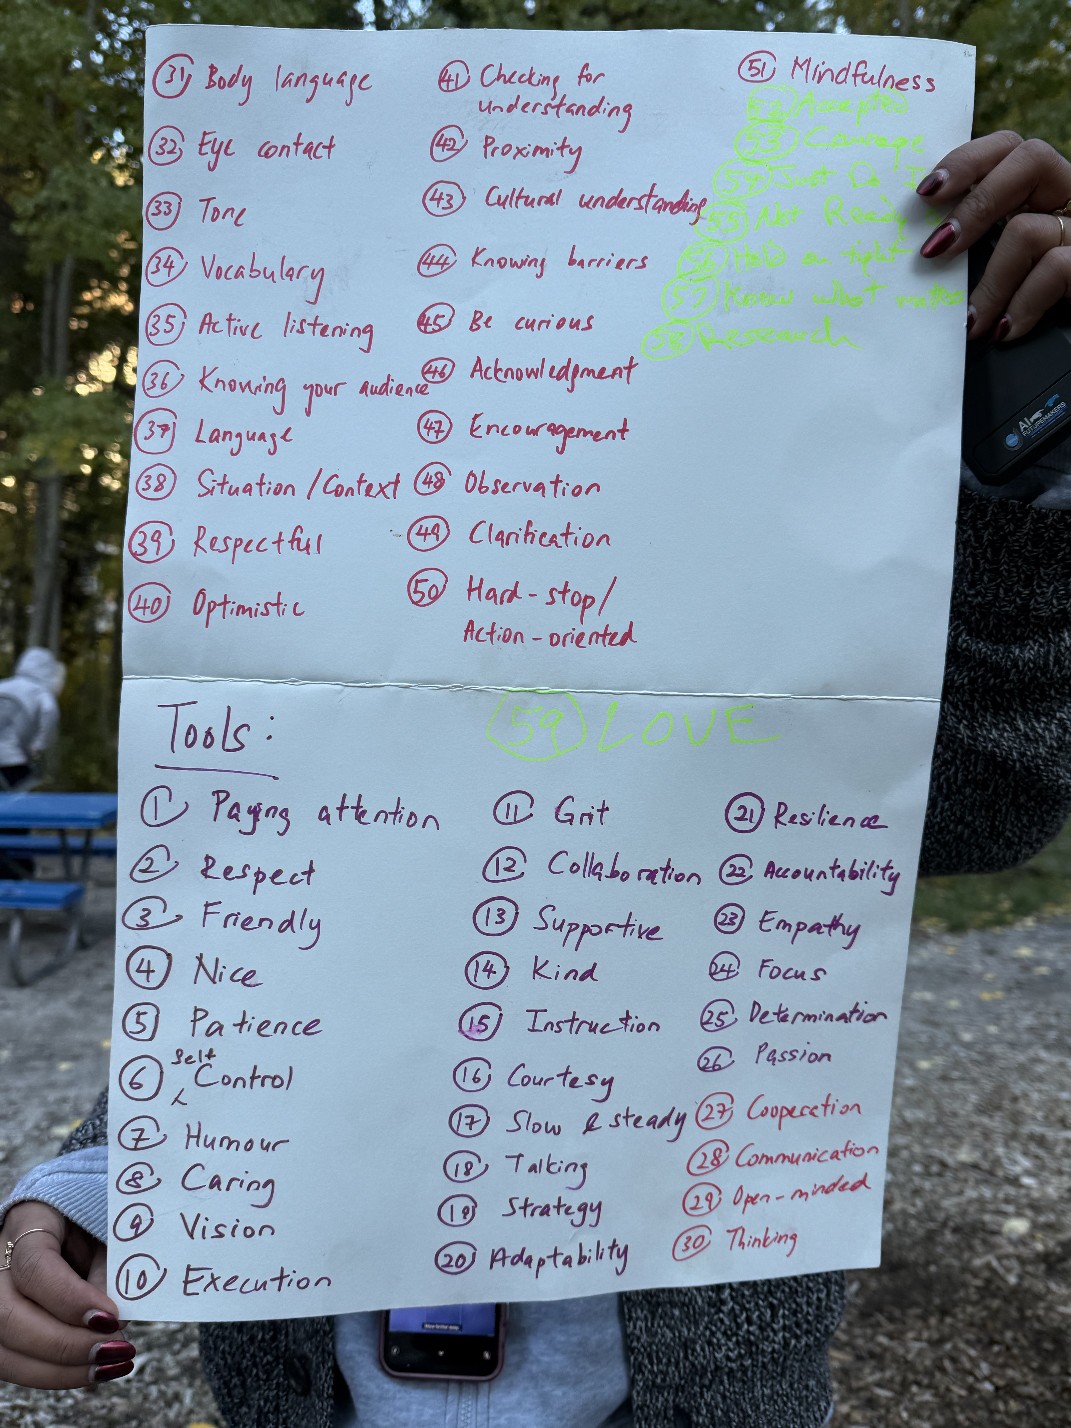 31 Body language
32 Eye contact
33 Tone
34 Vocabulary
35 Active listening
36 Knowing your audience
37 Language
38 Situation / Context
39 Respectful
40 Optimistic
41 Checking for
understanding
42 Proximity
43 Cultural understanding
44 Knowing barriers
45 Be curious
46 Acknowledgment
47 Encouragement
48 Observation
49 Clarification
50 Hard-stop/
Action-oriented
51 Mindfulness
52 Accepted
53 Courage
54 Just Do I
55 Not Ready
56 Hold on tight
57 Know what matters
58 Research
59 LOVE
Tools:
1 Paying attention
2 Respect
3 Friendly
4 Nice
5 Patience
6 Self Control
7 Humour
8 Caring
9 Vision
10 Execution
11 Grit
12 Collaboration
13 Supportive
14 Kind
15 Instruction
16 Courtesy
17 Slow & steady
18 Talking
19 Strategy
20 Adaptability
21 Resilience
22 Accountability
23 Empathy
24 Focus
25 Determination
26 Passion
27 Cooperation
28 Communication
29 Open-minded
30 Thinking
AI
FUTUREMAKERS